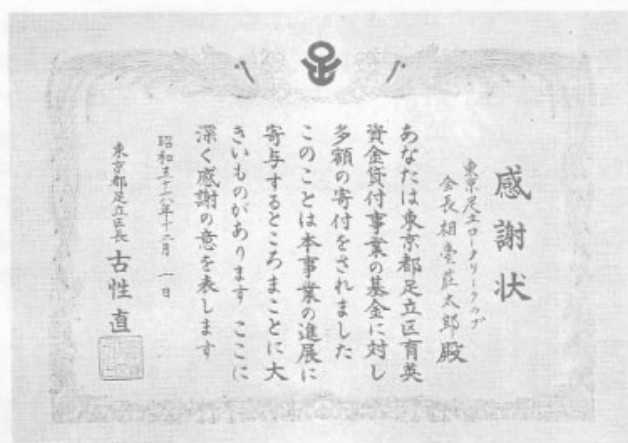 感謝状
東京足立ロータリークラブ
会長相壹荘太郎殿
あなたは東京都足立区育英
資金貸付事業の基金に対し
多額の寄付をされました
このことは本事業の進展に
寄与するところまことに大
きいものがあります ここに
深く感謝の意を表します
昭和五十六年十二月 一日
東京都足立区長 古性直